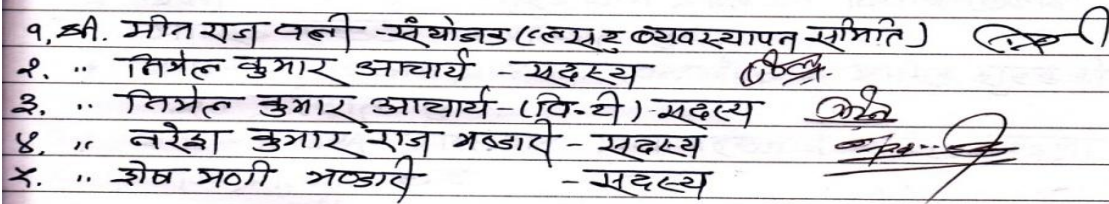 १. श्री. मीत राज वली - संयोजक (ल्हासु व्यवस्थापन समिति)
२. " निर्मल कुमार आचार्य - सदस्य
३. " निर्मल कुमार आचार्य - (वि.टी) - सदस्य
४. " नरेश कुमार राज भण्डारी - सदस्य
५. " शेष मणी भण्डारी - सदस्य